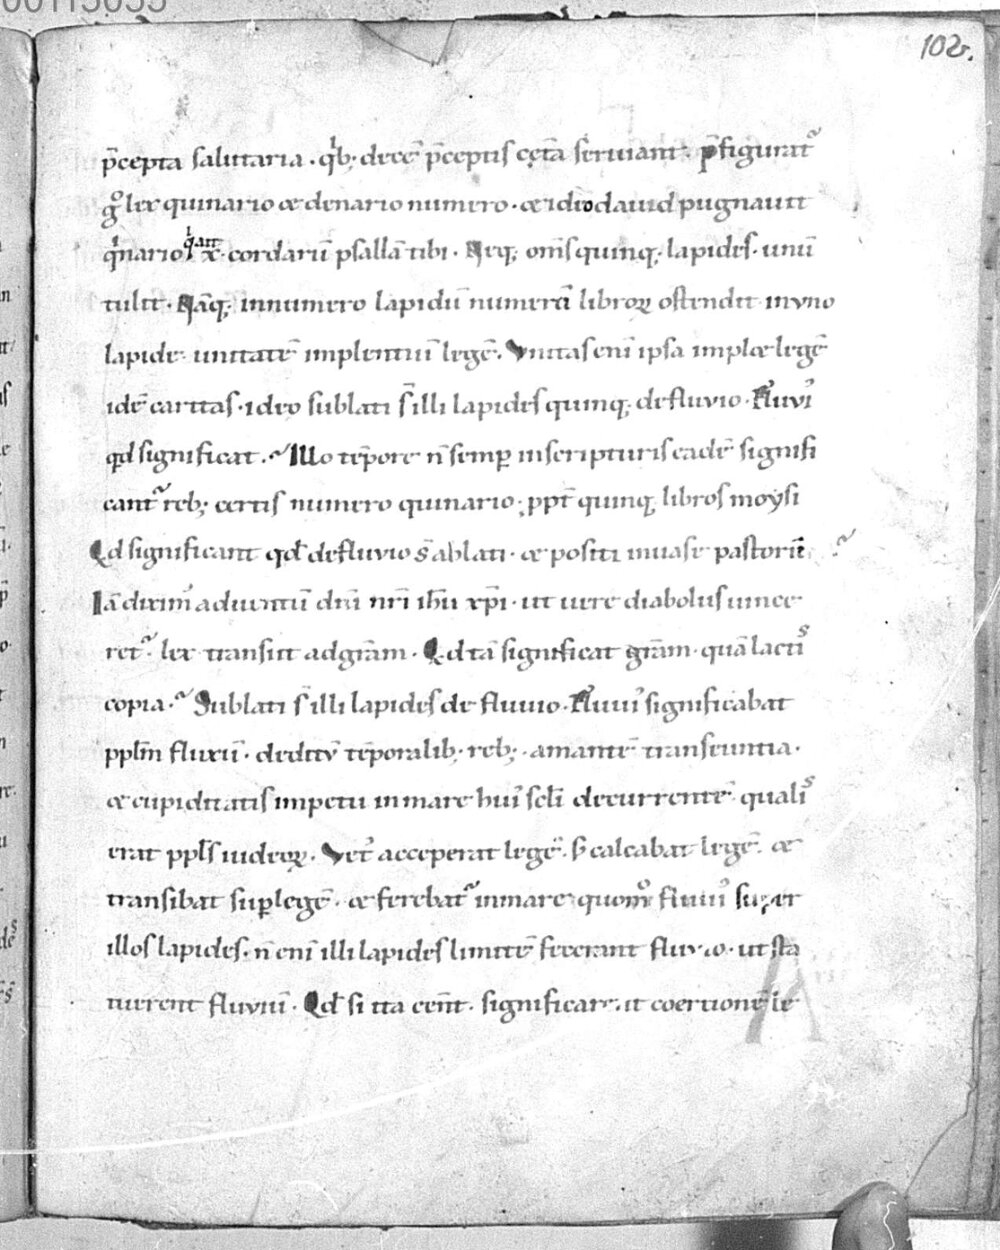 00115055
102.
p̄cepta salutaria · q̇b; decē p̄ceptis cęt̄a seruiant · p̄figurat᷒
g̊ lex quinario & denario numero · & ideo dauid pugnauit
q̇nario · x · cordarū psallā tibi · Neq; om̄s quinq; lapides · unū
q̇ ait
tulit · Nāq; innumero lapidū numerū libroꝝ ostendit inuno
lapide · unitatē implentiū legē. Vnitas enī ipsa impl& legē
idē caritas · ideo sublati s̄ illi lapides quinq; defluuio · Fluui᷒
qd significat . Illo tēpore n̄ semꝑ inscripturis eadē signifi
cant᷒ reb; certis numero quinario · ppt̄ quinq; libros moysi
Qd significant qd̄ defluuio s̄ ablati · & positi inuase pastorū
Iā dixim᷒ aduentū dn̄i nr̄i ih̄u xp̄i · ut uere diabolus uince
ret᷒ · lex transiit adgr̄am · Qd tā significat gr̄am · quā lactis
copia · Sublati s̄ illi lapides de fluuio · Fluui᷒ significabat
pplm̄ fluxū · deditū tēporalib; reb; · amantē transeuntia ·
& cupiditatis impetu inmare hui᷒ scl̄i decurrentē · qualis
erat ppl̄s iudeoꝝ · Vet᷒ acceperat legē · s; calcabat legē · &
transibat suꝑlegē · & ferebat᷒ inmare quom̊ fluui᷒ super
illos lapides · n̄ enī illi lapides limitē fecerant fluuio · ut sta
tuerent fluuiū · Qd̄ si ita cēnt · significarent coertionē le